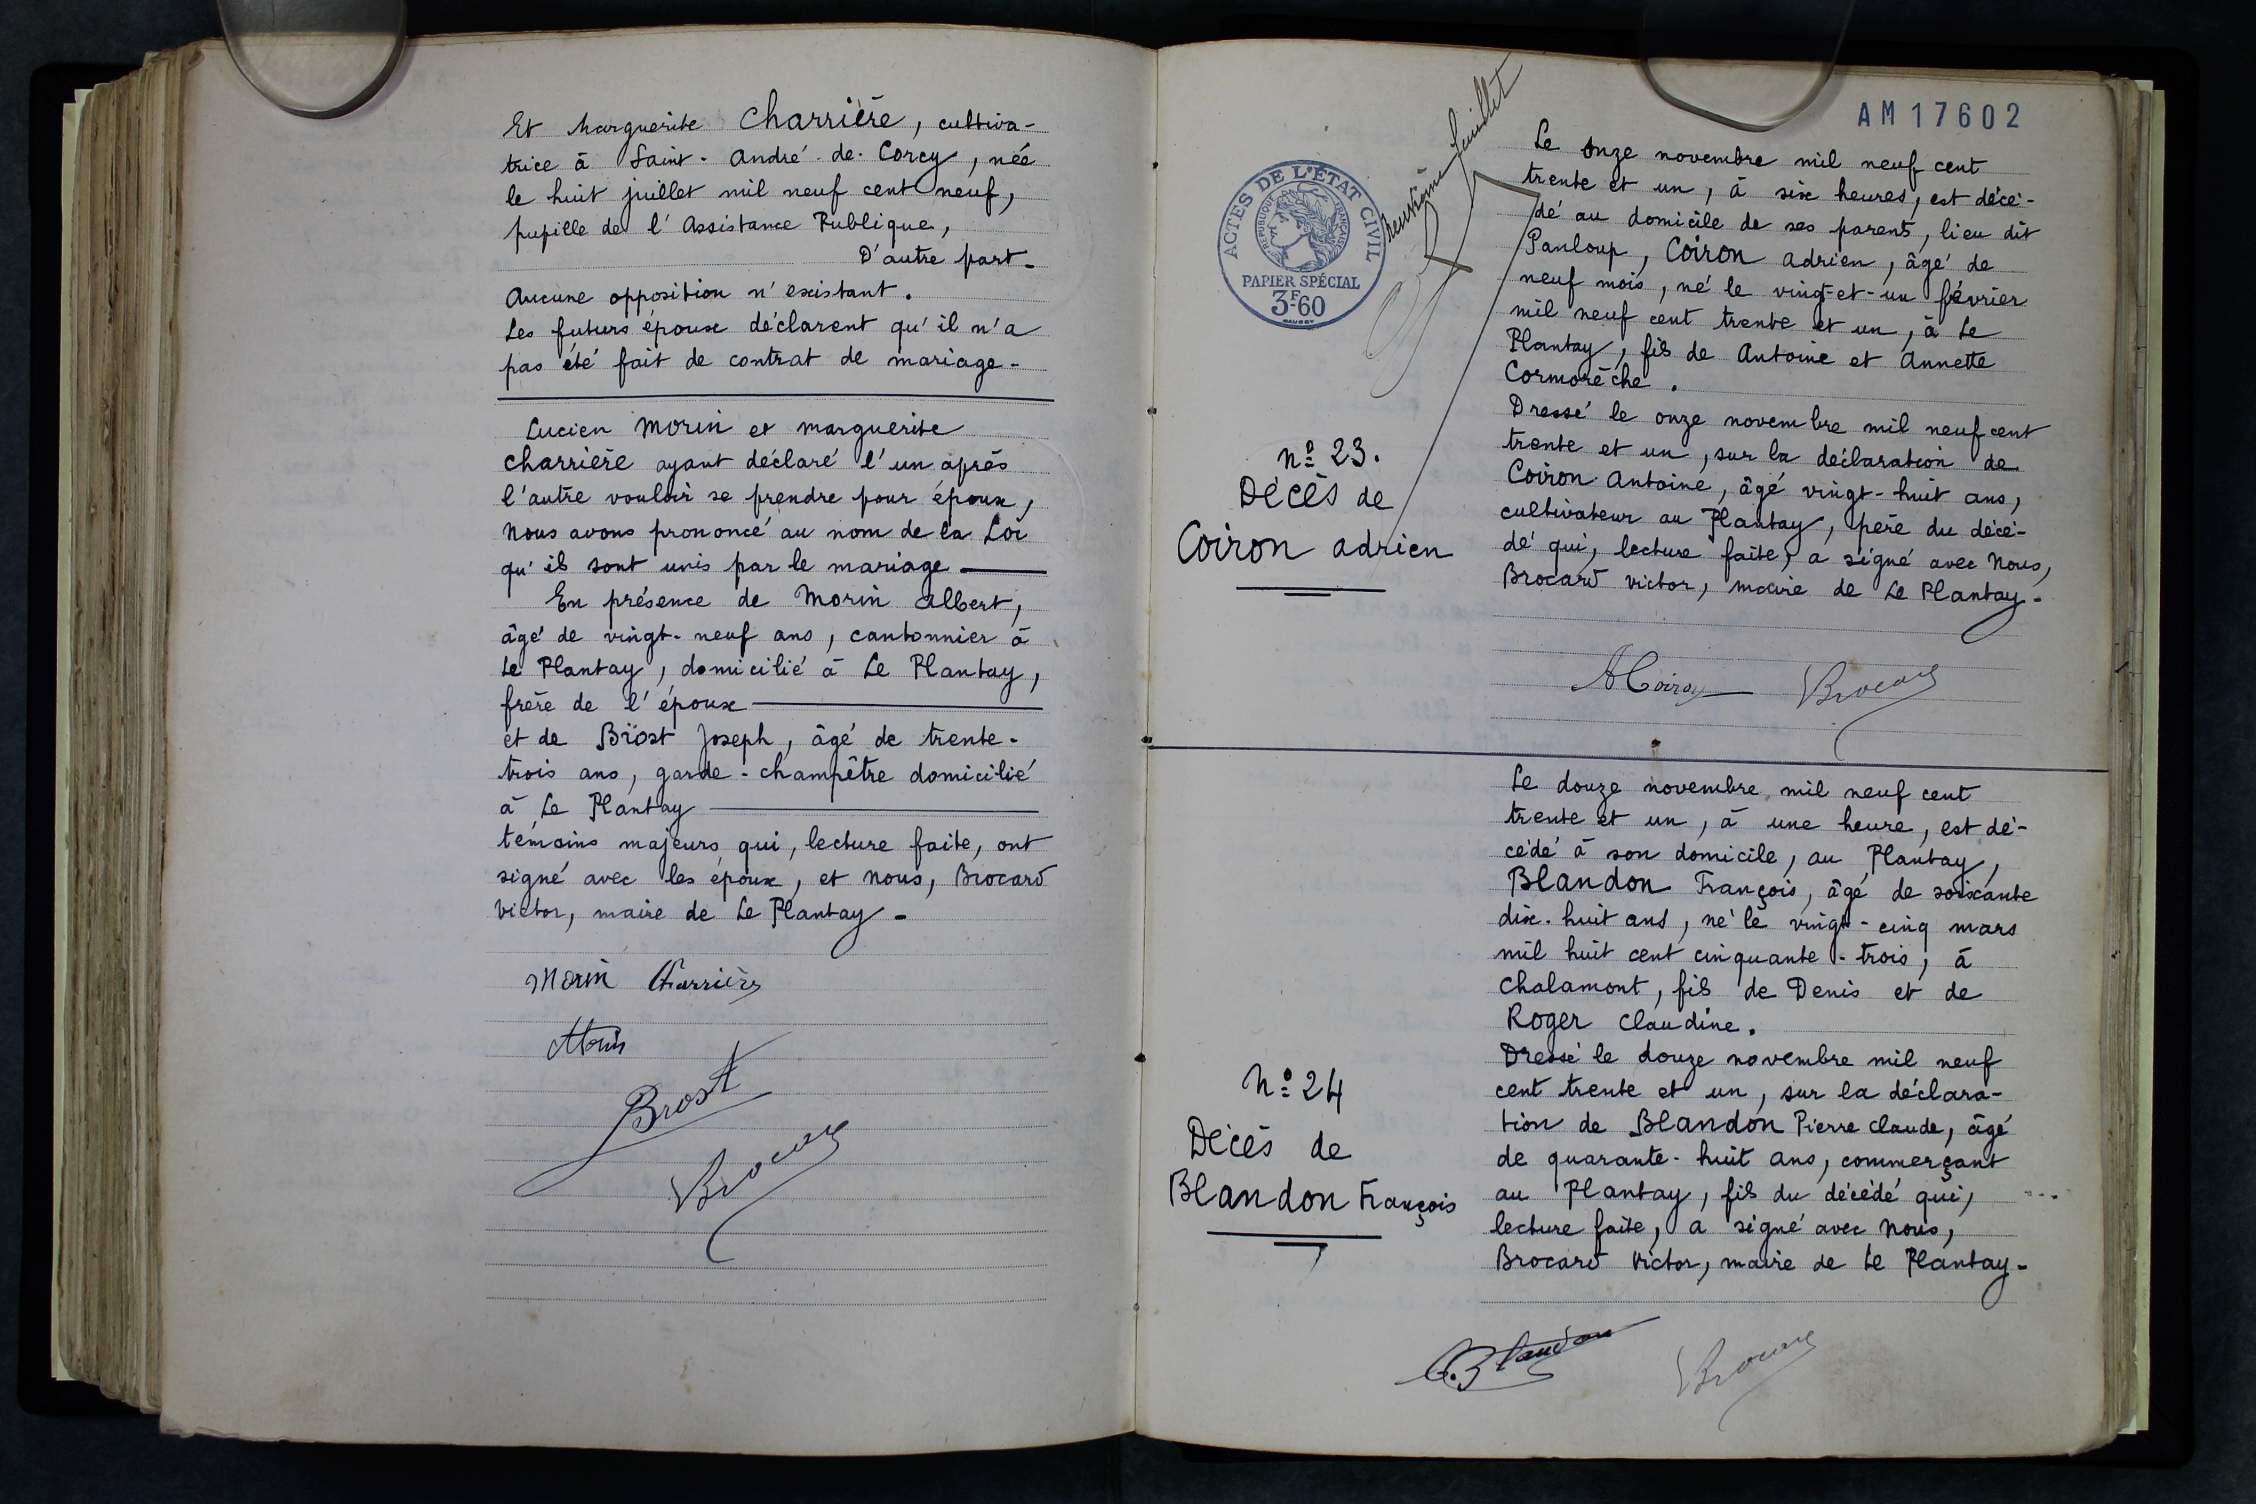 Et Marguerite Charrière, cultiva-
trice à Saint-André-de-Corcy, née
le huit juillet mil neuf cent neuf,
pupille de l'Assistance Publique,
D'autre part-
Aucune opposition n'existant.
Les futurs époux déclarent qu'il n'a
pas été fait de contrat de mariage-
Lucien Morin et Marguerite
Charrière ayant déclaré l'un après
l'autre vouloir se prendre pour époux,
nous avons prononcé au nom de la Loi
qu'ils sont unis par le mariage
En présence de Morin Albert,
âgé de vingt-neuf ans, cantonnier à
Le Plantay, domicilié à Le Plantay,
frère de l'époux
et de Brost Joseph, âgé de trente-
trois ans, garde-champêtre domicilié
à Le Plantay
témoins majeurs qui, lecture faite, ont
signé avec les époux, et nous, Brocard
Victor, maire de Le Plantay-
Morin Charrière
Morin
Brost
Brocard
AM17602
feuillet
ACTES DE L'ÉTAT CIVIL
RÉPUBLIQUE FRANÇAISE
PAPIER SPÉCIAL
3F60
Le onze novembre mil neuf cent
trente et un, à six heures, est décé-
dé au domicile de ses parents, lieu dit
Panloup, Coiron Adrien, âgé de
neuf mois, né le vingt-et-un février
mil neuf cent trente et un, à Le
Plantay, fils de Antoine et Annette
Cormorèche.
Dressé le onze novembre mil neuf cent
trente et un, sur la déclaration de
Coiron Antoine, âgé vingt-huit ans,
cultivateur au Plantay, père du décé-
dé qui, lecture faite, a signé avec Nous,
Brocard Victor, maire de Le Plantay-
No 23.
Décès de
Coiron Adrien
A Coiron Brocard
Le douze novembre mil neuf cent
trente et un, à une heure, est dé-
cédé à son domicile, au Plantay,
Blandon François, âgé de soixante
dix-huit ans, né le vingt-cinq mars
mil huit cent cinquante-trois, à
Chalamont, fils de Denis et de
Roger Claudine.
Dressé le douze novembre mil neuf
cent trente et un, sur la déclara-
tion de Blandon Pierre Claude, âgé
de quarante-huit ans, commerçant
au Plantay, fils du décédé qui,
lecture faite, a signé avec Nous,
Brocard Victor, maire de Le Plantay-
No 24
Décès de
Blandon François
C. Blandon Brocard